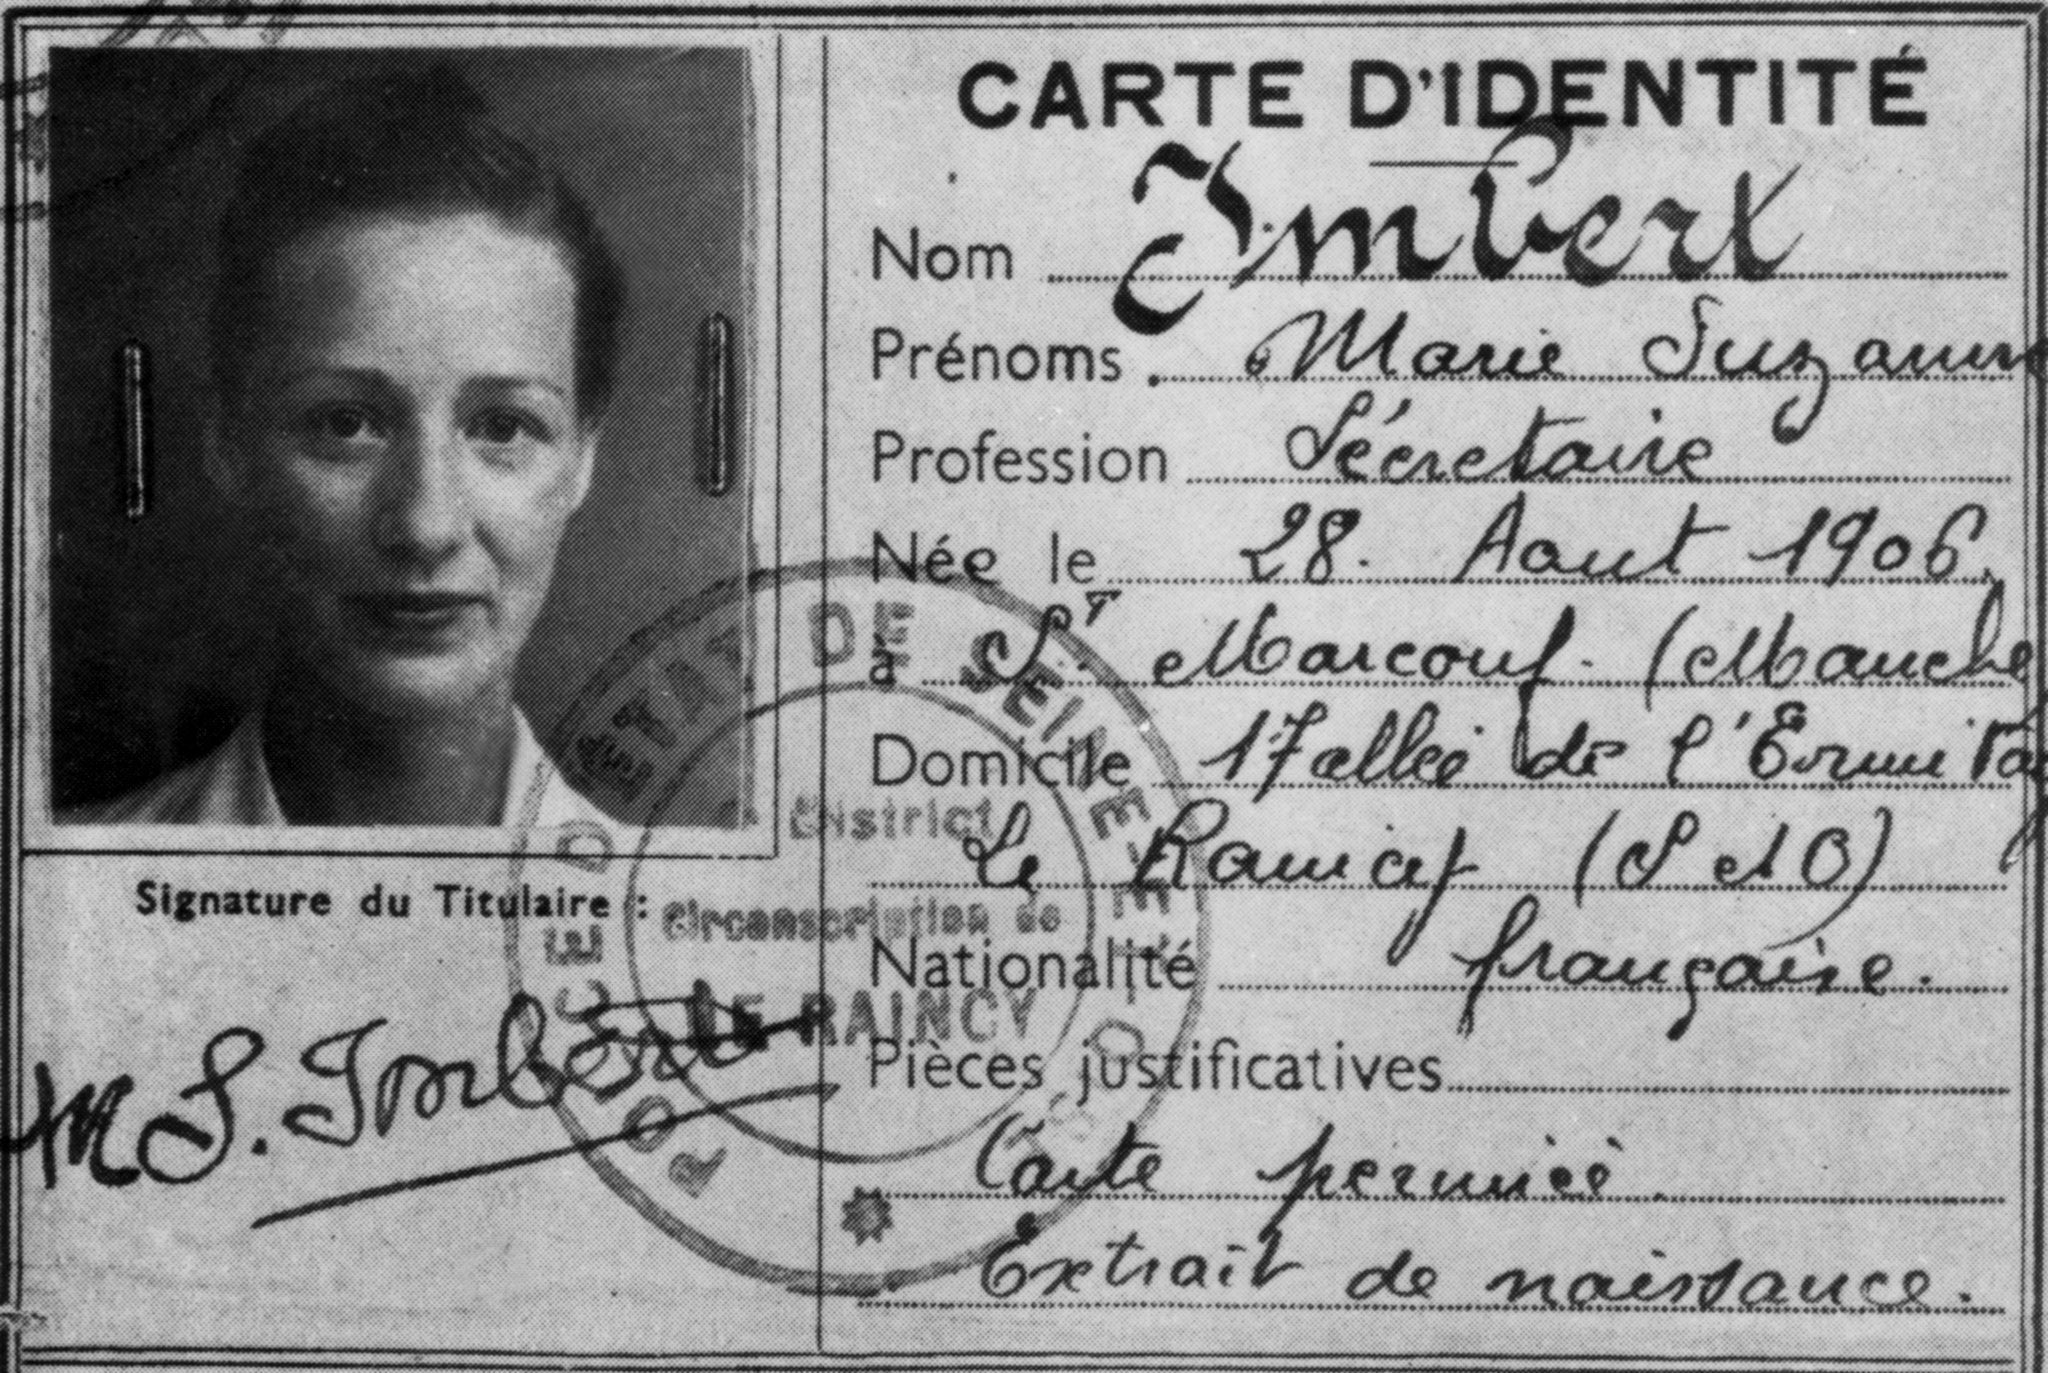 CARTE D'IDENTITÉ
Nom Imbert
Prénoms Marie Suzanne
Profession Sécretaire
Née le 28. Aout 1906.
à St Marcouf. (Manche
Domicile 17 allée de l'Ermitag
Le Raincy (S et O)
Nationalité française.
Pièces justificatives
Carte périmée.
Extrait de naissance.
Signature du Titulaire :
M S. Imbert
DE SEINE-ET-O
District
Circonscription de
LE RAINCY